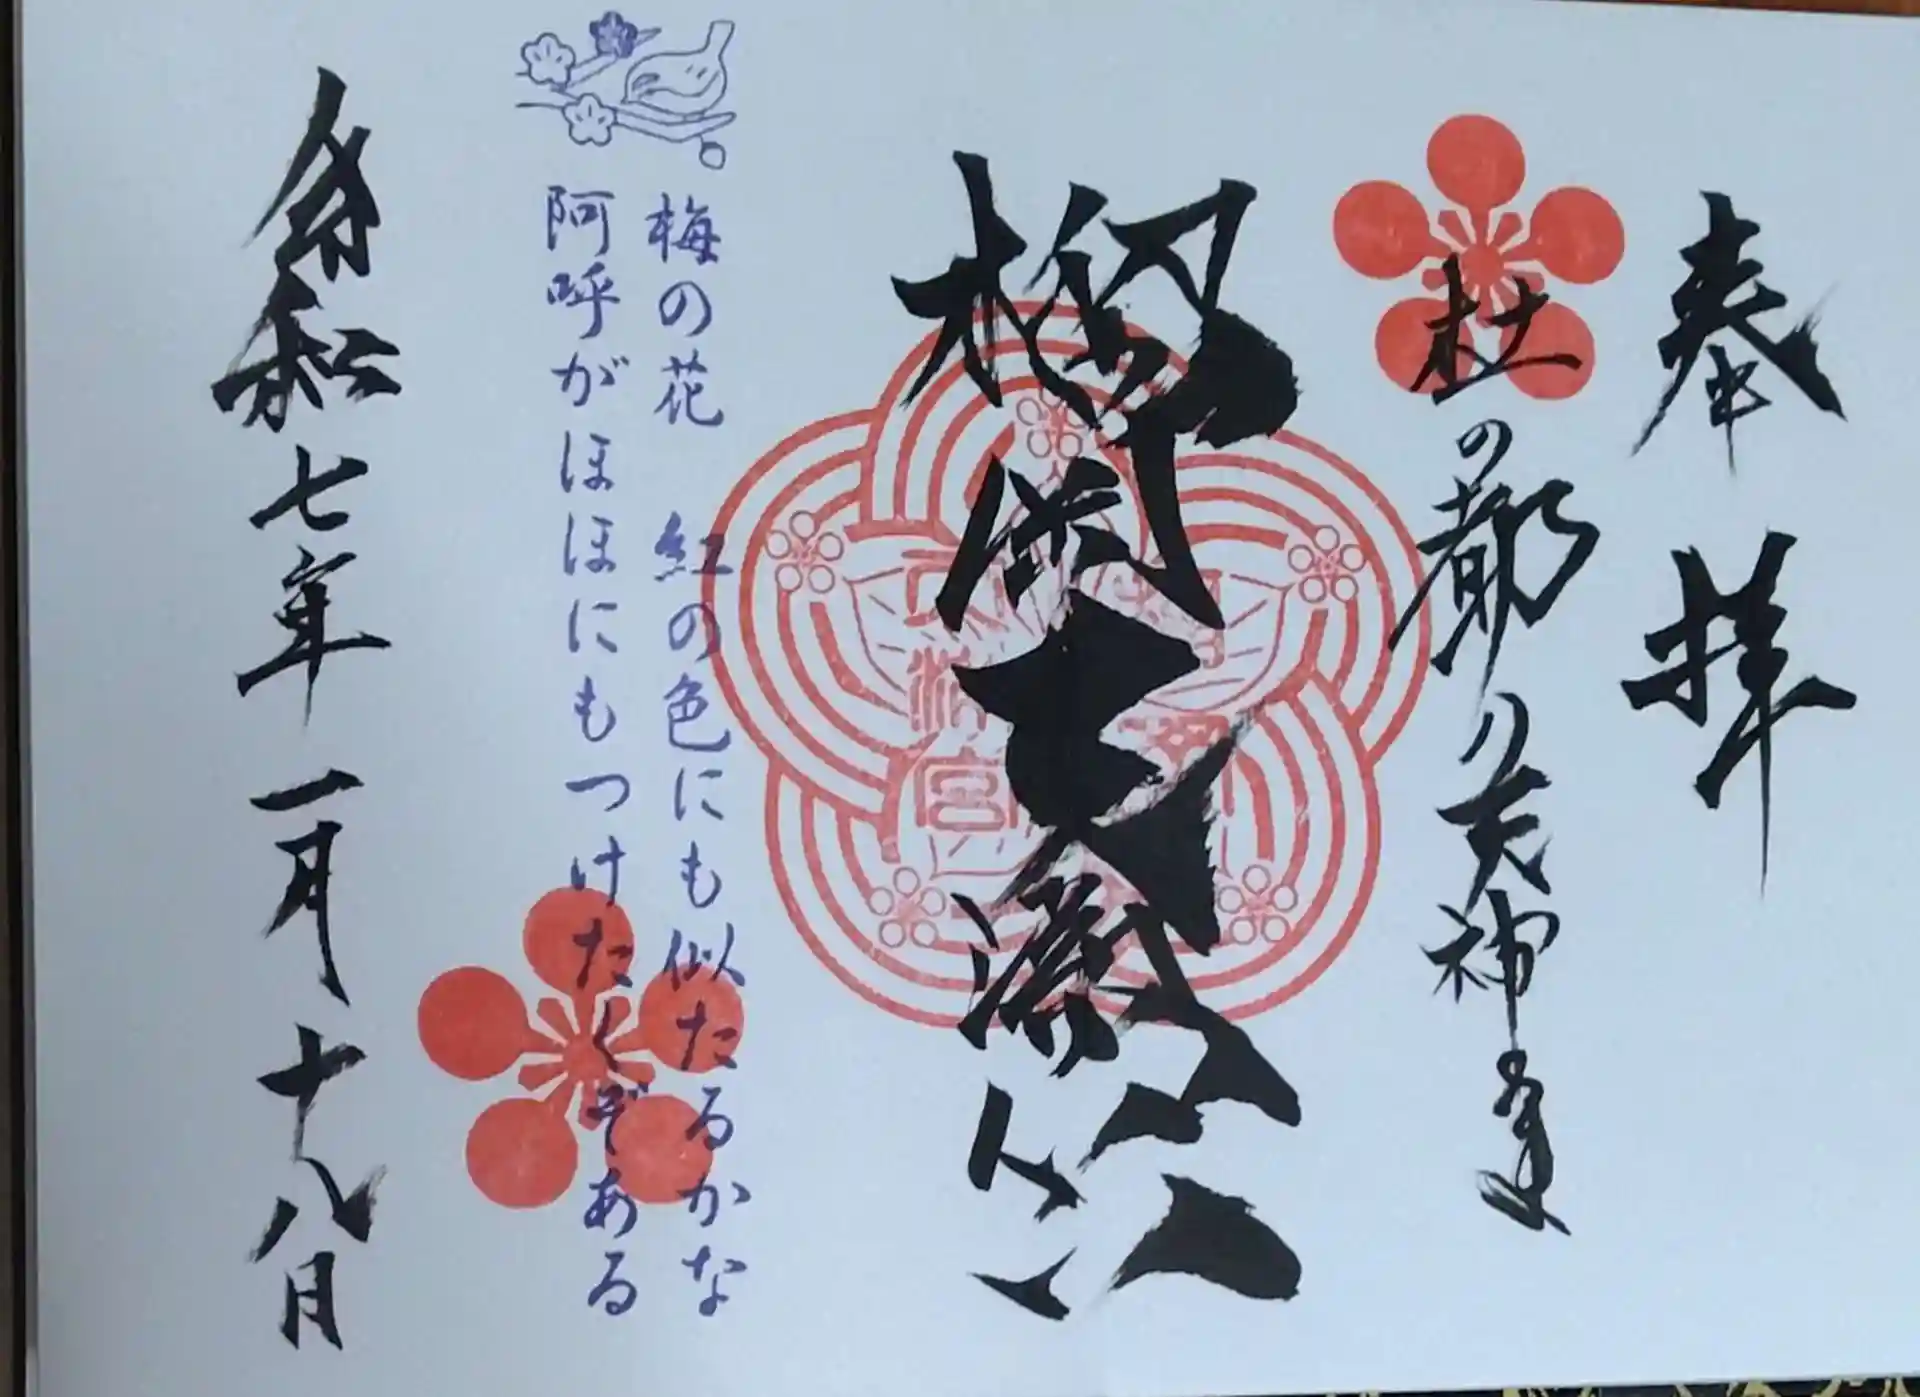 奉拝
杜の都乃天神さま
榴岡天満宮
梅の花 紅の色にも似たるかな
阿呼がほほにもつけたくぞある
令和七年一月十八日